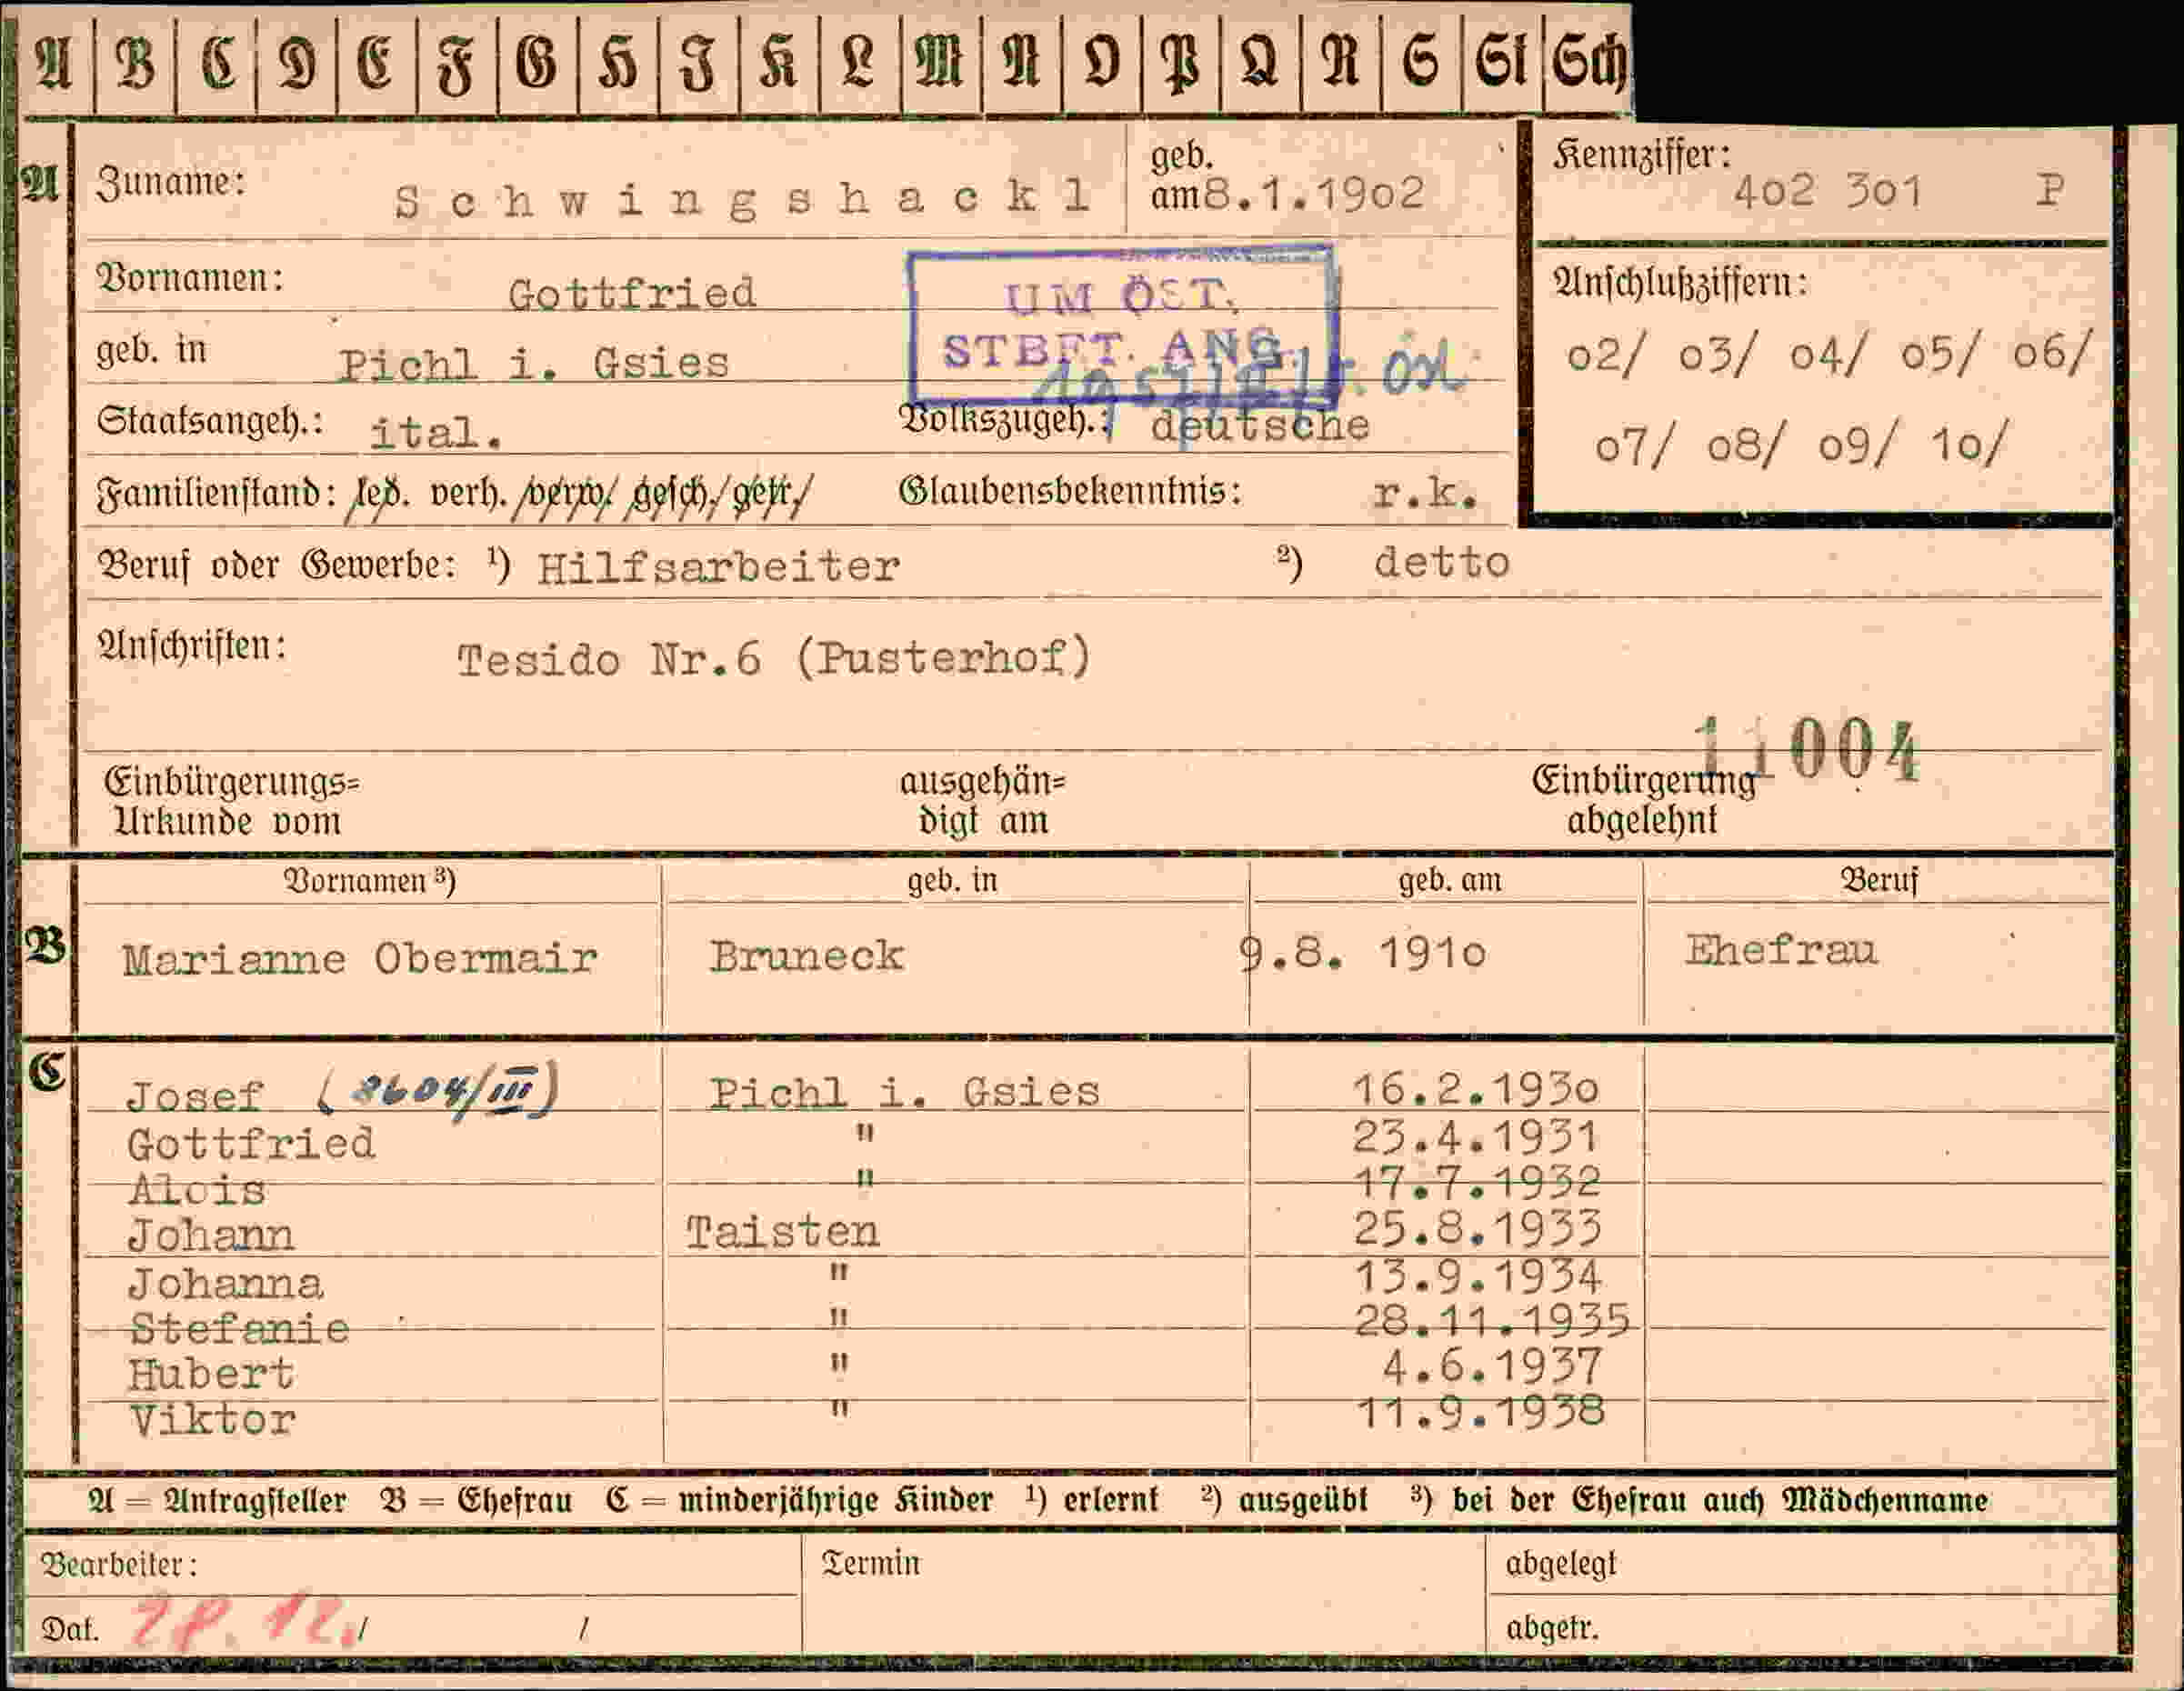 A B C D E F G H J K L M N O P Q R S St Sch
A Zuname: Schwingshackl geb. am 8.1.1902 Kennziffer: 402 301 P
Vornamen: Gottfried
UM ÖST.
STBFT. ANG.
Anschlußziffern:
02/ 03/ 04/ 05/ 06/
07/ 08/ 09/ 10/
geb. in Pichl i. Gsies
Staatsangeh.: ital. Volkszugeh.: deutsche
Familienstand: led. verh. verw. gesch. getr. Glaubensbekenntnis: r.k.
Beruf oder Gewerbe: ¹) Hilfsarbeiter ²) detto
Anschriften: Tesido Nr.6 (Pusterhof)
11004
Einbürgerungs= ausgehän= Einbürgerung
Urkunde vom digt am abgelehnt
Vornamen ³) geb. in geb. am Beruf
B Marianne Obermair Bruneck 9.8. 1910 Ehefrau
C Josef Pichl i. Gsies 16.2.1930
Gottfried " 23.4.1931
Alois " 17.7.1932
Johann Taisten 25.8.1933
Johanna " 13.9.1934
Stefanie " 28.11.1935
Hubert " 4.6.1937
Viktor " 11.9.1938
A = Antragsteller B = Ehefrau C = minderjährige Kinder ¹) erlernt ²) ausgeübt ³) bei der Ehefrau auch Mädchenname
Bearbeiter: Termin abgelegt
Dat. / / abgetr.